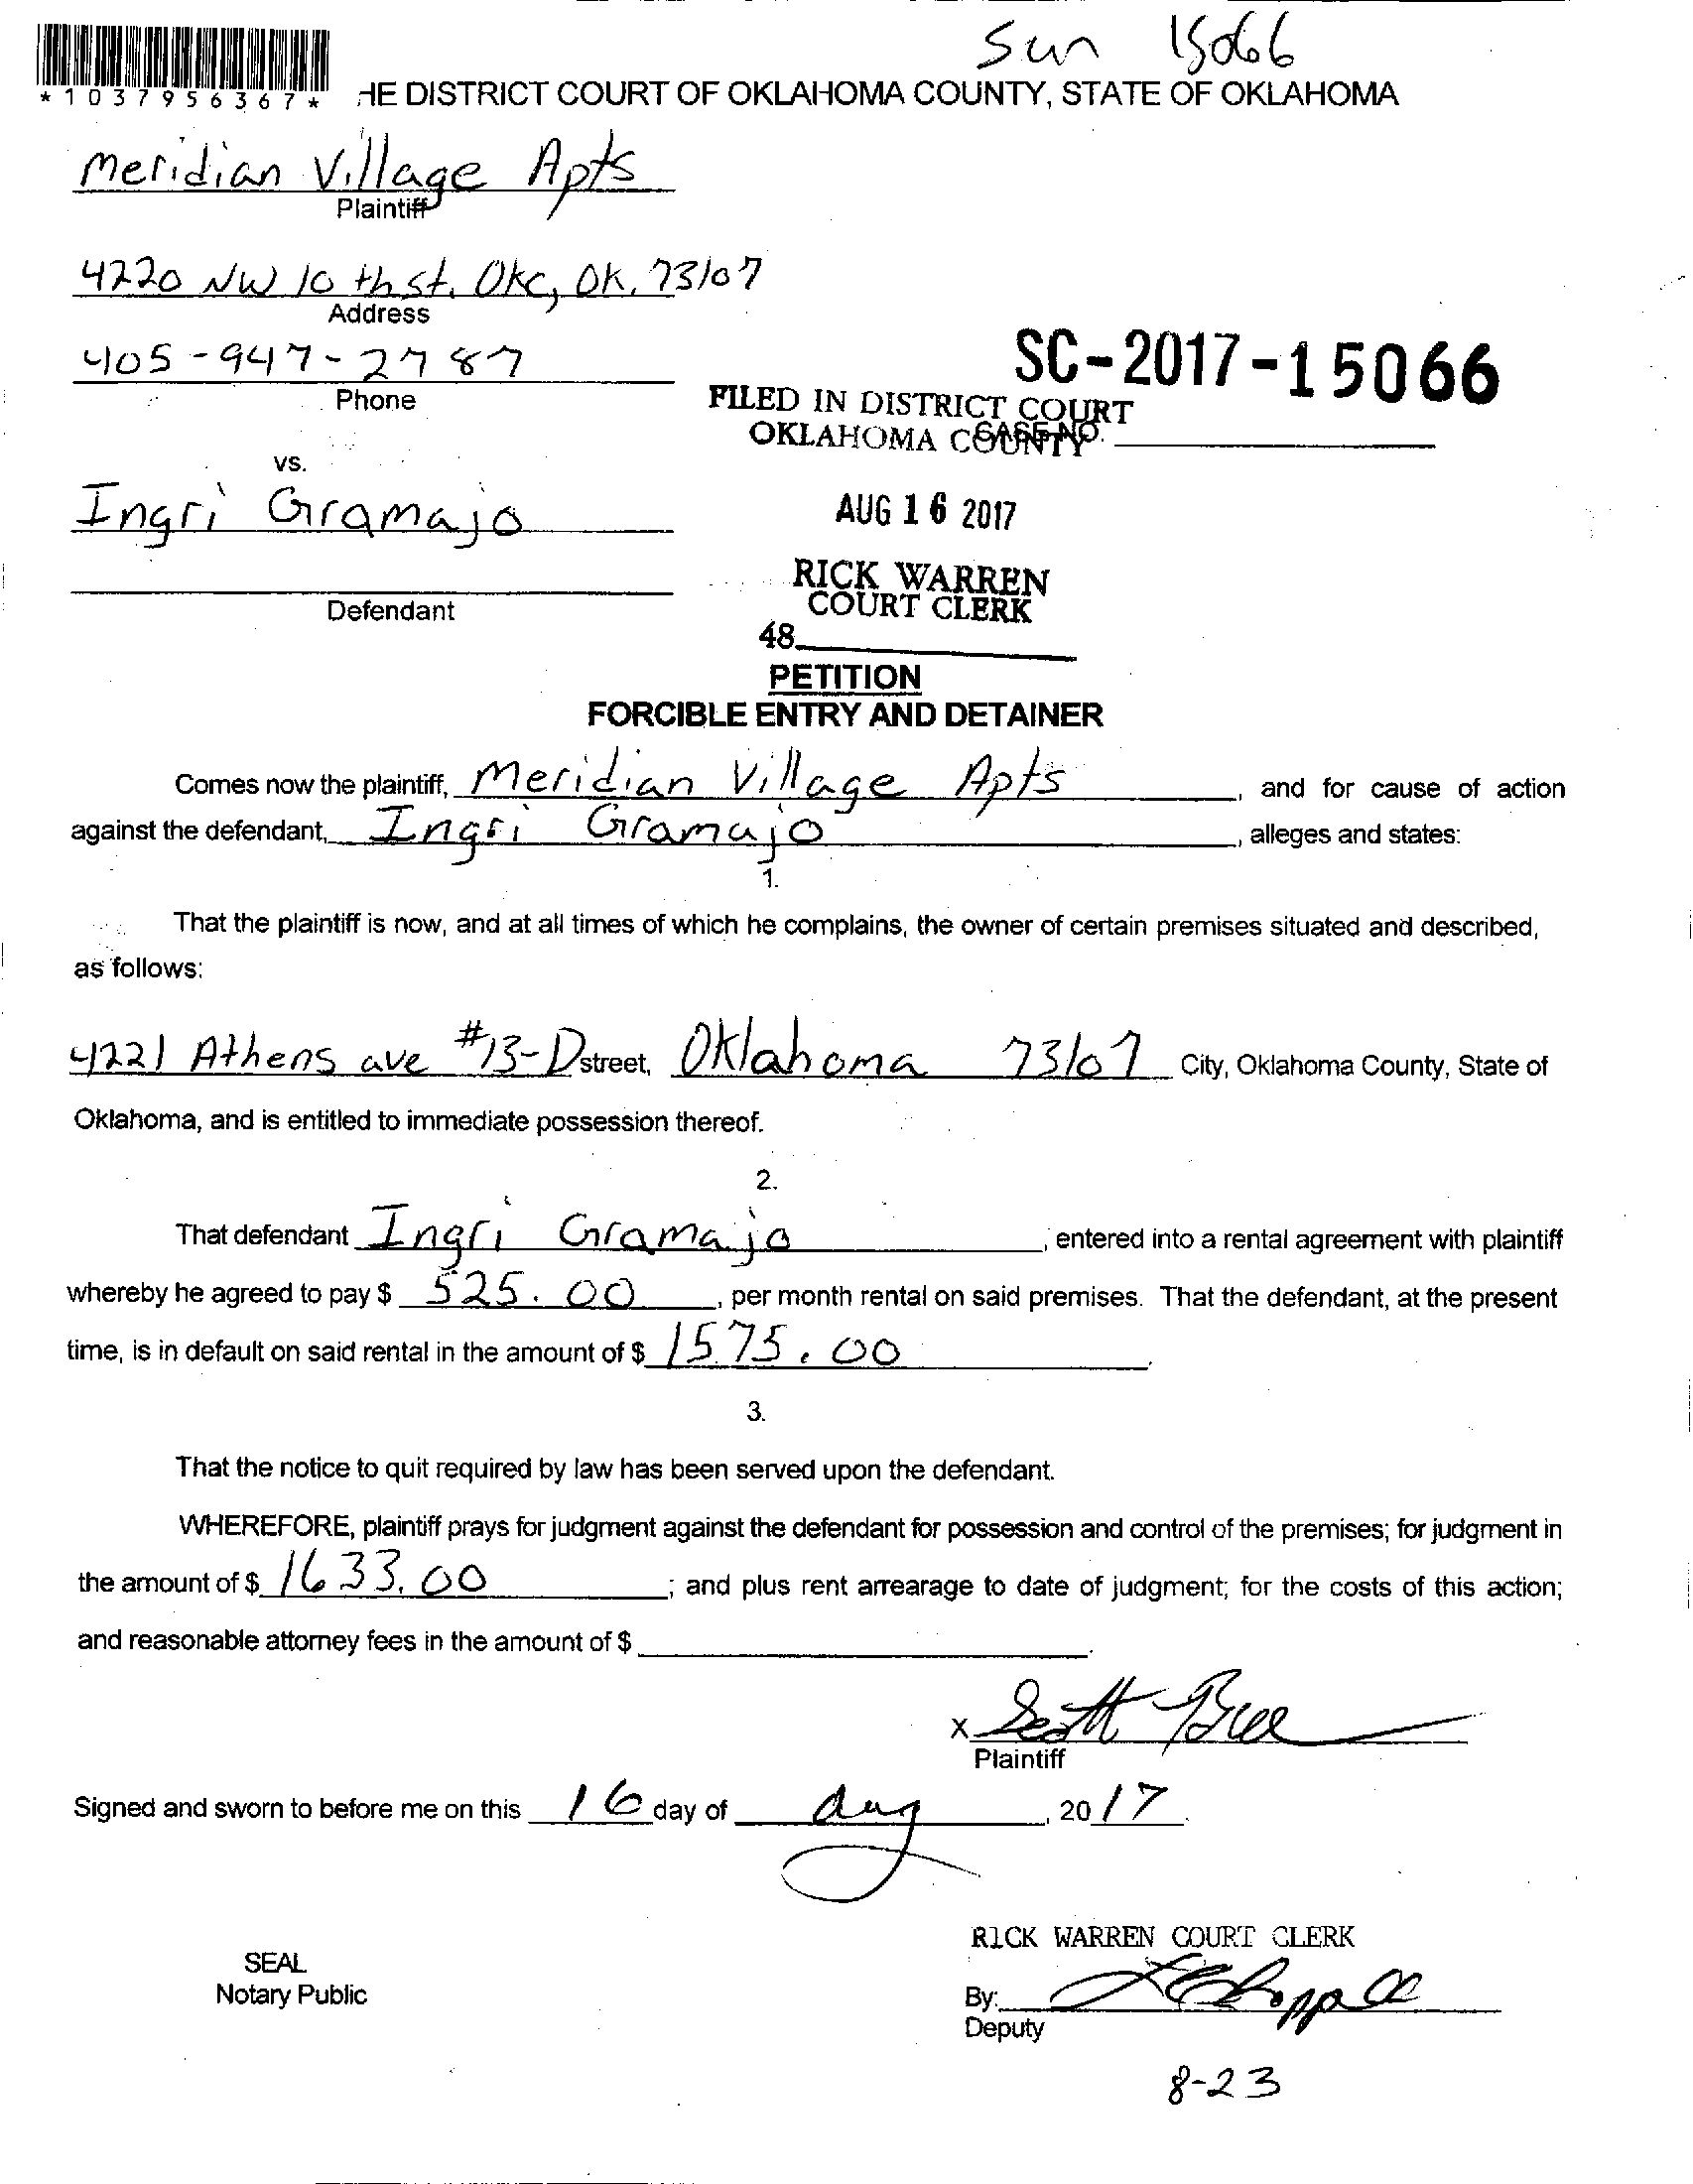 Sum 15066
*1037956367* HE DISTRICT COURT OF OKLAHOMA COUNTY, STATE OF OKLAHOMA
Meridian Village Apts
Plaintiff
4220 NW 10th st. OKC, OK, 73107
Address
405-947-2787
Phone
SC-2017-15066
FILED IN DISTRICT COURT
OKLAHOMA COUNTY
CASE NO.
vs.
Ingri Gramajo
AUG 16 2017
RICK WARREN
COURT CLERK
Defendant
48
PETITION
FORCIBLE ENTRY AND DETAINER
Comes now the plaintiff, Meridian Village Apts, and for cause of action
against the defendant, Ingri Gramajo, alleges and states:
1.
That the plaintiff is now, and at all times of which he complains, the owner of certain premises situated and described,
as follows:
4221 Athens ave #13-D street, Oklahoma 73107 City, Oklahoma County, State of
Oklahoma, and is entitled to immediate possession thereof.
2.
That defendant Ingri Gramajo, entered into a rental agreement with plaintiff
whereby he agreed to pay $ 525.00, per month rental on said premises. That the defendant, at the present
time, is in default on said rental in the amount of $ 1575.00.
3.
That the notice to quit required by law has been served upon the defendant.
WHEREFORE, plaintiff prays for judgment against the defendant for possession and control of the premises; for judgment in
the amount of $ 1633.00; and plus rent arrearage to date of judgment; for the costs of this action;
and reasonable attorney fees in the amount of $ .
x Scott
Plaintiff
Signed and sworn to before me on this 16 day of Aug, 2017.
RICK WARREN COURT CLERK
SEAL
Notary Public
By:
Deputy
8-23